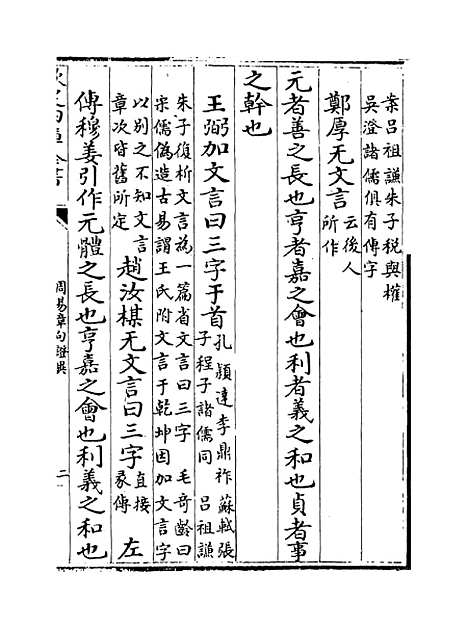 案呂祖謙朱子税與權
吳澄諸儒俱有傳字
鄭厚无文言云後人
所作
元者善之長也亨者嘉之會也利者義之和也貞者事
之幹也
王弼加文言曰三字于首孔頴達李鼎祚蘇軾張
子程子諸儒同 呂祖謙
朱子復析文言為一篇省文言曰三字 毛奇齡曰
宋儒偽造古易謂王氏附文言于乾坤因加文言字
以别之不知文言
章次皆舊所定
趙汝楳无文言曰三字直接
彖傳
左
傳穆姜引作元體之長也亨嘉之會也利義之和也
周易章句證異
二